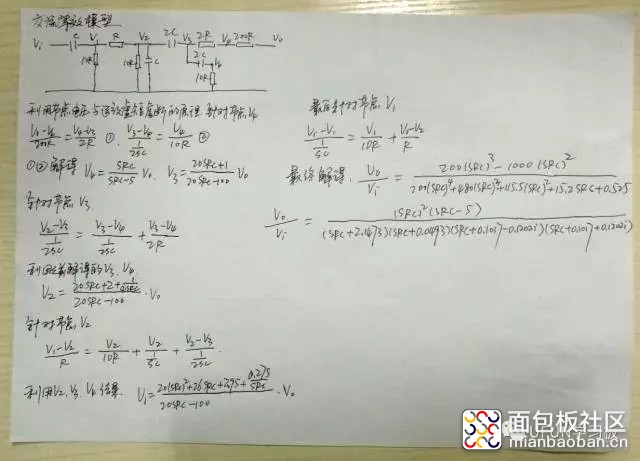 交流等效模型
Vi C V1 R V2 2C V3 2R V4 200R Vo
10R 10R C 2C 10R
利用节点电压与运放虚短虚断的原理 针对节点V4
(Vo-V4)/200R = (V4-V3)/2R ① (V3-V4)/(1/2SC) = V4/10R ②
①②解得 V4 = SRC/(SRC-5) Vo V3 = (20SRC+1)/(20SRC-100) Vo
针对节点V3
(V2-V3)/(1/2SC) = (V3-V4)/(1/2SC) + (V3-V4)/2R
利用上式解得的V3、V4
V2 = ·Vo
针对节点V2
(V1-V2)/R = V2/10R + V2/(1/SC) + (V2-V3)/(1/2SC)
利用V2、V3、V4结果 V1 = (20(SRC)²+26SRC+7.95+0.275/SRC)/(20SRC-100) ·Vo
最后针对节点V1
(Vi-V1)/(1/SC) = V1/10R + (V1-V2)/R
最终解得. Vo/Vi = (200(SRC)³-1000(SRC)²)/(200(SRC)⁴+480(SRC)³+115.5(SRC)²+15.2SRC+0.525)
Vo/Vi = (SRC)²(SRC-5)/((SRC+2.1473)(SRC+0.0493)(SRC+0.1017-0.1202i)(SRC+0.1017+0.1202i))
面包板社区
mianbaoban.cn